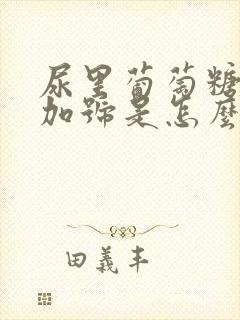 尿里葡萄糖
加號是怎麼
田義丰